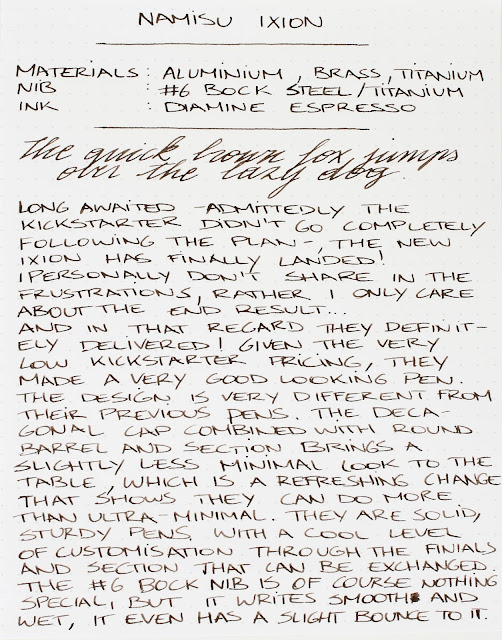 NAMISU IXION
MATERIALS : ALUMINIUM, BRASS, TITANIUM
NIB : #6 BOCK STEEL/TITANIUM
INK : DIAMINE ESPRESSO
the quick brown fox jumps
over the lazy dog.
LONG AWAITED -ADMITTEDLY THE
KICKSTARTER DIDN'T GO COMPLETELY
FOLLOWING THE PLAN-, THE NEW
IXION HAS FINALLY LANDED!
I PERSONALLY DON'T SHARE IN THE
FRUSTRATIONS, RATHER I ONLY CARE
ABOUT THE END RESULT...
AND IN THAT REGARD THEY DEFINIT-
ELY DELIVERED! GIVEN THE VERY
LOW KICKSTARTER PRICING, THEY
MADE A VERY GOOD LOOKING PEN.
THE DESIGN IS VERY DIFFERENT FROM
THEIR PREVIOUS PENS. THE DECA-
GONAL CAP COMBINED WITH ROUND
BARREL AND SECTION BRINGS A
SLIGHTLY LESS MINIMAL LOOK TO THE
TABLE, WHICH IS A REFRESHING CHANGE
THAT SHOWS THEY CAN DO MORE
THAN ULTRA-MINIMAL. THEY ARE SOLID,
STURDY PENS WITH A COOL LEVEL
OF CUSTOMISATION THROUGH THE FINIALS
AND SECTION THAT CAN BE EXCHANGED.
THE #6 BOCK NIB IS OF COURSE NOTHING
SPECIAL, BUT IT WRITES SMOOTH AND
WET, IT EVEN HAS A SLIGHT BOUNCE TO IT.